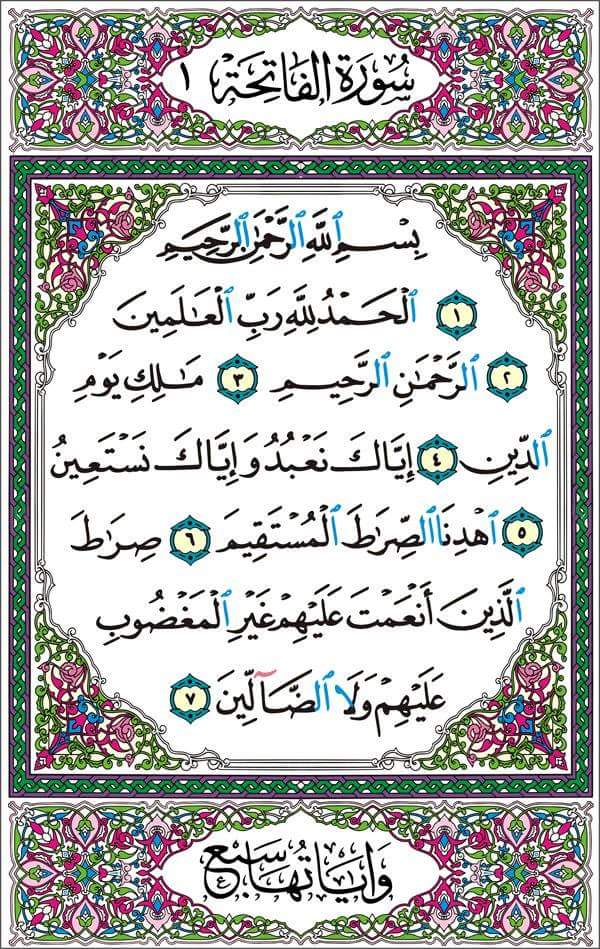 سُورَةُ الفَاتِحَة ١
بِسْمِ ٱللَّهِ ٱلرَّحْمَٰنِ ٱلرَّحِيمِ
١ ٱلْحَمْدُ لِلَّهِ رَبِّ ٱلْعَٰلَمِينَ
٢ ٱلرَّحْمَٰنِ ٱلرَّحِيمِ ٣ مَٰلِكِ يَوْمِ
ٱلدِّينِ ٤ إِيَّاكَ نَعْبُدُ وَإِيَّاكَ نَسْتَعِينُ
٥ ٱهْدِنَا ٱلصِّرَٰطَ ٱلْمُسْتَقِيمَ ٦ صِرَٰطَ
ٱلَّذِينَ أَنْعَمْتَ عَلَيْهِمْ غَيْرِ ٱلْمَغْضُوبِ
عَلَيْهِمْ وَلَا ٱلضَّآلِّينَ ٧
وَاياتُهَا سَبْع